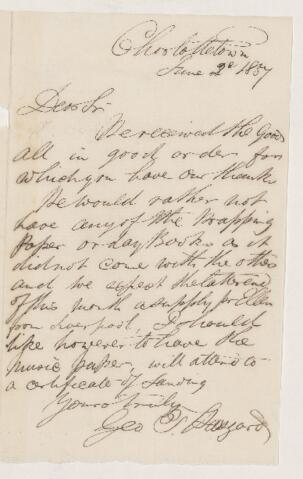 Charlottetown
June 2d 1857
Dear Sir
We received the Goods
all in good order for
which you have our thanks
We would rather not
have any of the Wrapping
Paper or day Books as it
did not come with the others
and we expect the latter end
of this month a supply
from Liverpool, I should
like however to have the
music paper, will attend to
a certificate of Landing
Yours truly
Geo T. Haszard